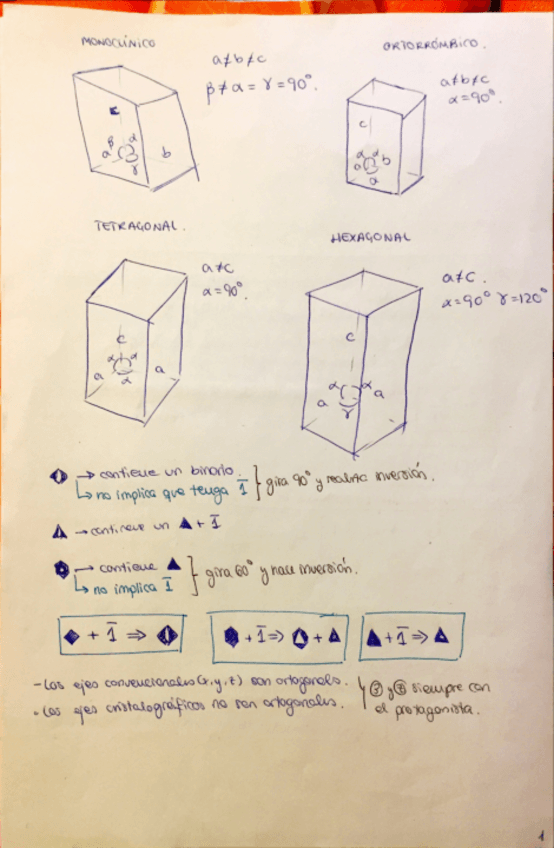 MONOCLÍNICO
a≠b≠c
β≠α=γ=90°.
c
β α
a γ b
ORTORRÓMBICO.
a≠b≠c
α=90°.
c
α α
a b
α
TETRAGONAL.
a≠c
α=90°.
c
α α
a α a
HEXAGONAL
a≠c.
α=90° γ=120°
c
α α
a γ a
→ contiene un binario.
↳ no implica que tenga 1̅ } gira 90° y realiza inversión.
→ contiene un ▲ + 1̅
→ contiene ▲
↳ no implica 1̅ } gira 60° y hace inversión.
◆ + 1̅ ⇒
⬢ + 1̅ ⇒ + △
▲ + 1̅ ⇒ △
- Los ejes convencionales (x,y,z) son ortogonales.
· Los ejes cristalográficos no son ortogonales.
y siempre con
el protagonista.
1